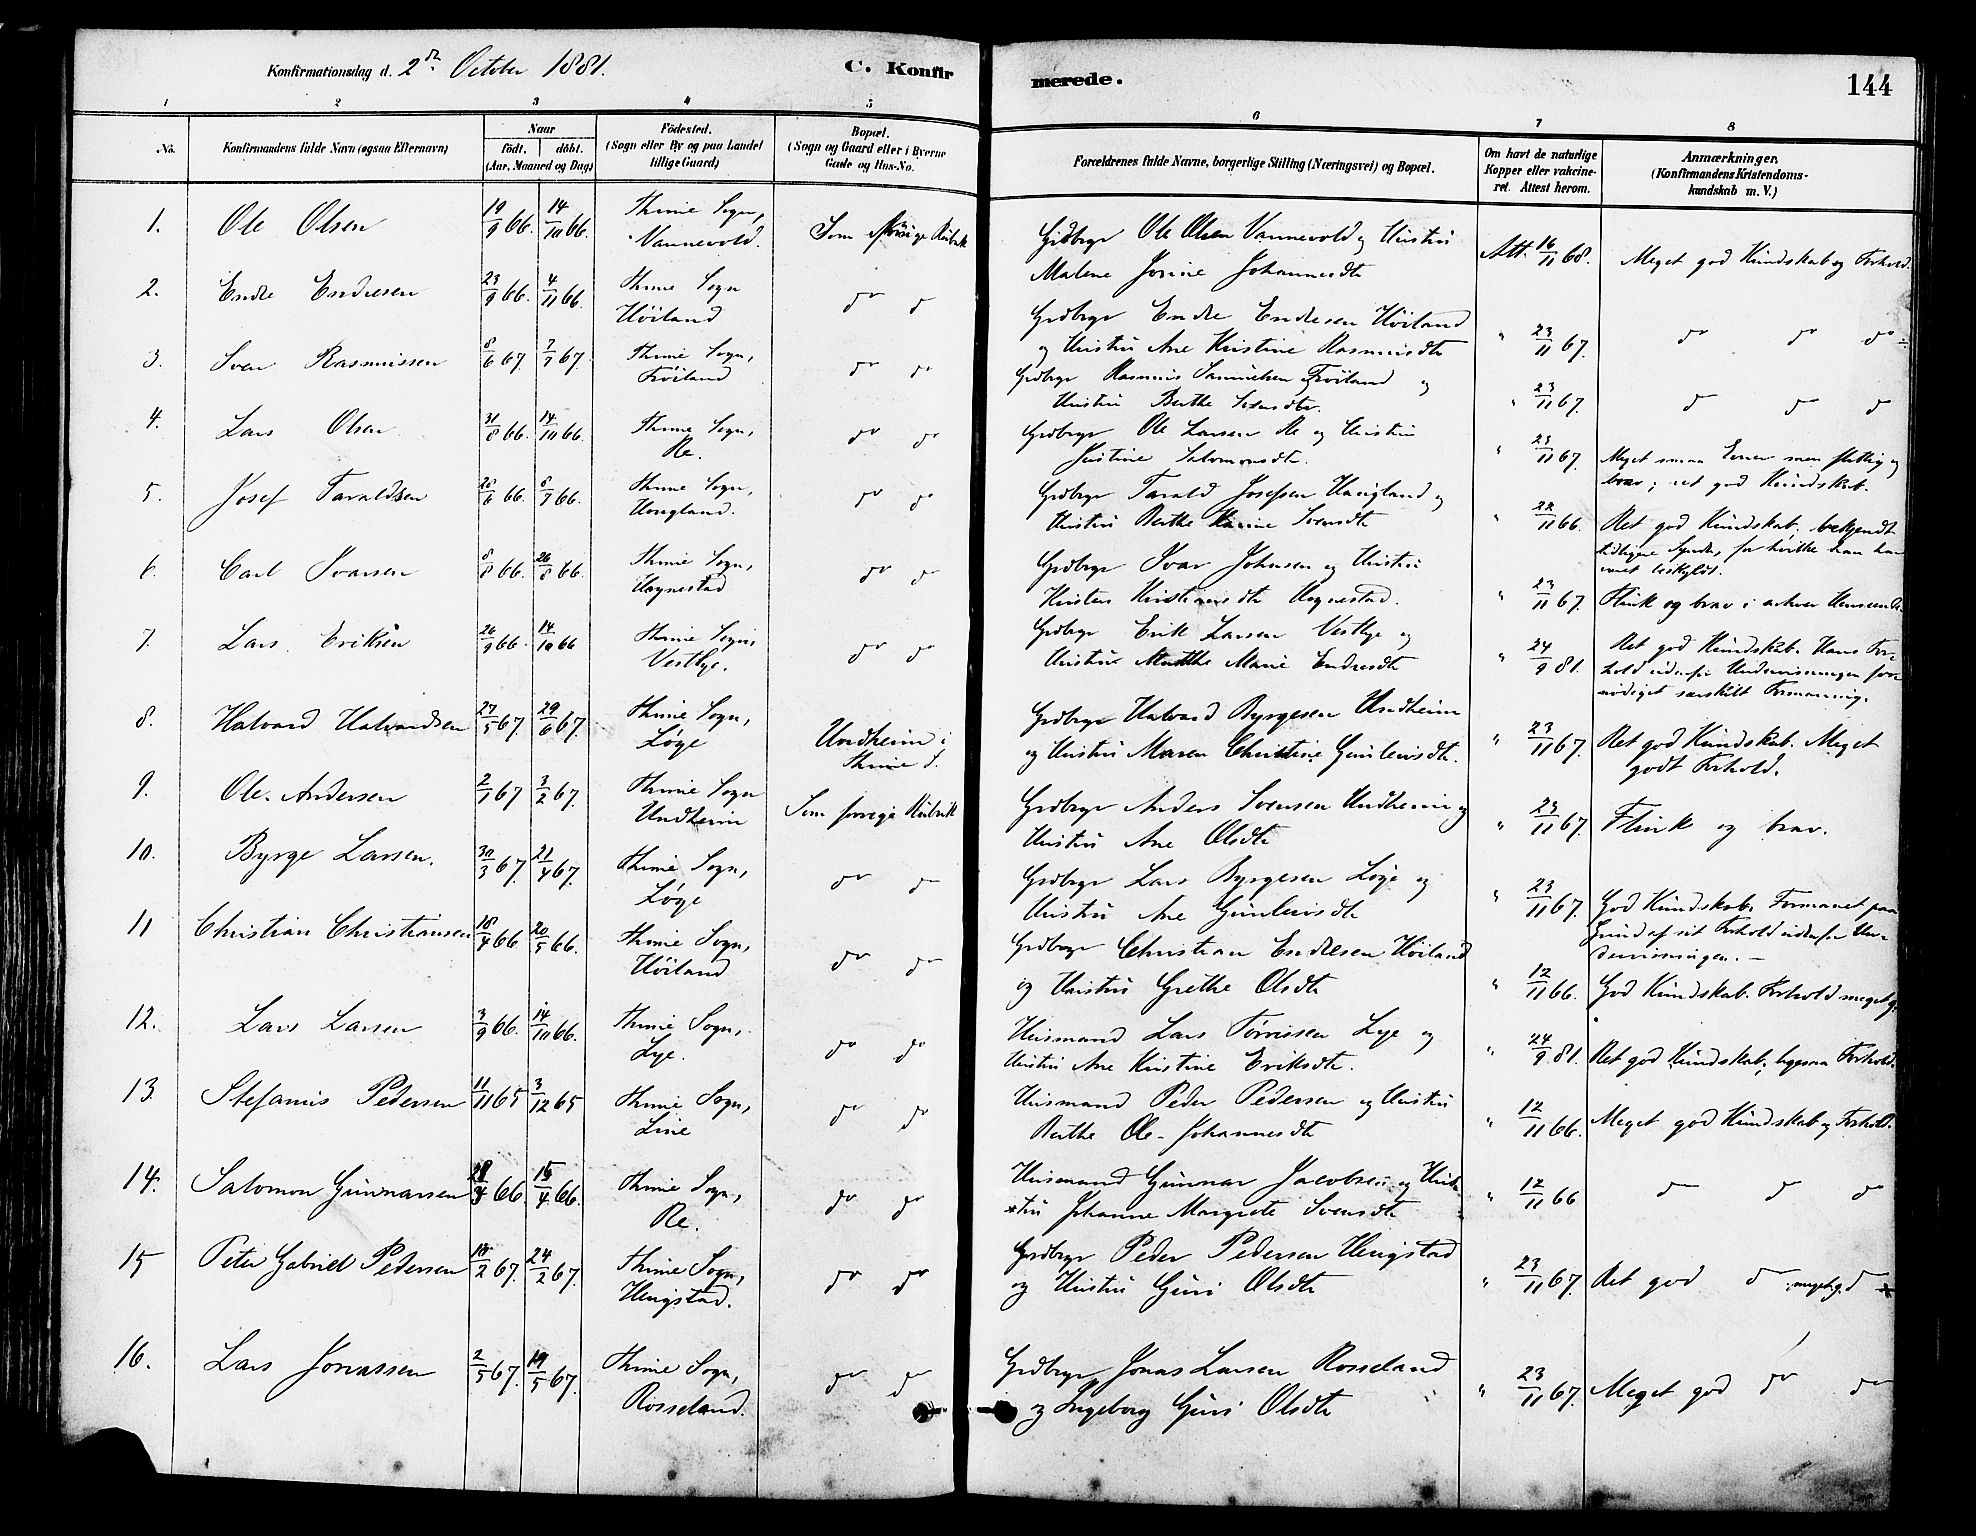 Konfirmationsdag d. 2den October 1881. C. Konfir merede. 144
1 2 3 4 5 6 7 8
No. Konfirmandens fulde Navn (ogsaa Efternavn) Naar födt. döbt. (Aar, Maaned og Dag) Födested. (Sogn eller By og paa Landet tillige Gaard) Bopæl. (Sogn og Gaard eller i Byerne Gade og Hus-No. Forældrenes fulde Navne, borgerlige Stilling (Næringsvei) og Bopæl. Om havt de naturlige Kopper eller vakcineret. Attest herom. Anmærkninger. (Konfirmandens Kristendomskundskab m. V.)
1. Ole Olsen 19/9 66. 14/10 66. Thime Sogn, Vannevold. Som forrige Rubrik Grdbrgr Ole Olsen Vannevold og Hustru
Malene Jorine Johannesdtr Att. 16/11 68. Meget god Kundskab og Forhold.
2. Endre Endresen 23/9 66. 4/11 66. Thime Sogn Höiland do do Grdbrgr Endre Endresen Höiland
og Hustru Ane Kristine Rasmusdtr " 23/11 67. do do do
3. Sven Rasmussen 8/6 67. 7/7 67. Thime Sogn, Fröiland do do Grdbrgr Rasmus Samuelsen Fröiland og
Hustru Berthe Svensdtr. " 23/11 67. do do do
4. Lars Olsen 31/8 66. 14/10 66. Thime Sogn, Re. do do Grdbrgr Ole Larsen Re og Hustru
Justine Salomonsdtr. " 23/11 67. Meget smaa Evner men flittig og
brav; ret god Kundskab.
5. Josef Taraldsen 66. 8/7 66. Thime Sogn, Haugland. do do Grdbrgr Tarald Josefsen Haugland og
Hustru Berthe Karine Svensdtr " 22/11 66. Ret god Kundskab. bekjendt
tidligere Synder, for hvilke han har
været beskyldt.
6. Carl Ivarsen 8/8 66. 26/8 66. Thime Sogn, Hognestad do do Grdbrgr Ivar Johnsen og Hustru
Kirsten Kristiansdtr Hognestad. " 23/11 67. Flink og brav i enhver Henseende
7. Lars Eriksen 26/9 66. 14/10 66 Thime Sogn, Vestlye. do do Grdbrgr Erik Larsen Vestlye og
Hustru Marthe Marie Endresdtr " 24/9 81. Ret god Kundskab. Hans Forhold
udenfor Undervisningen
nödiget særskilt Formaning.
8. Halvard Halvardsen 27/5 67. 29/6 67. Thime Sogn, Löge Undheim i Thime S. Grdbrgr Halvard Byrgesen Undheim
og Hustru Maren Christine Gunleivsdtr. " 23/11 67. Ret god Kundskab. Meget
godt Forhold.
9. Ole Andersen 2/1 67 3/2 67. Thime Sogn Undheim Som forrige Rubrik Grdbrgr Anders Svensen Undheim og
Hustru Ane Olsdtr " 23/11 67. Flink og brav.
10. Byrge Larsen. 30/3 67. 21/4 67. Thime Sogn, Löge do do Grdbrgr Lars Byrgesen Löge og
Hustru Ane Gunleivsdtr " 23/11 67. God Kundskab. Formanet paa
Grund af sit Forhold udenfor Undervisningen. —
11 Christian Christiansen 18/4 66 20/5 66. Thime Sogn, Höiland do do Grdbrgr Christian Endresen Höiland
og Hustru Grethe Olsdtr " 12/11 66. God Kundskab. Forhold meget g.
12. Lars Larsen 3/9 66. 14/10 66. Thime Sogn, Lye. do do Husmand Lars Törrissen Lye og
Hustru Ane Kristine Eriksdtr. " 24/9 81. Ret god Kundskab, ligesaa Forhold.
13. Stefanus Pedersen 11/11 65 3/12 65 Thime Sogn, Line do do Husmand Peder Pedersen og Hustru
Berthe Ole- Johannesdtr " 12/11 66. Meget god Kundskab og Forhold.
14. Salomon Gunnarsen 66. 15/4 66. Thime Sogn, Re. do do Husmand Gunnar Jacobsen og Hustru
Johanne Margrete Svensdtr " 12/11 66 do do do
15 Peter Gabriel Pedersen 67. 24/2 67. Thime Sogn, Haugstad. do do Grdbrgr Peder Pedersen Haugstad
og Hustru Guri Olsdtr " 23/11 67. Ret god do meget g. do
16. Lars Jonassen 2/5 67. 19/5 67. Thime Sogn, Rosseland. do do Grdbrgr Jonas Larsen Rosseland
og Ingeborg Guri Olsdtr " 23/11 67. Meget god do do